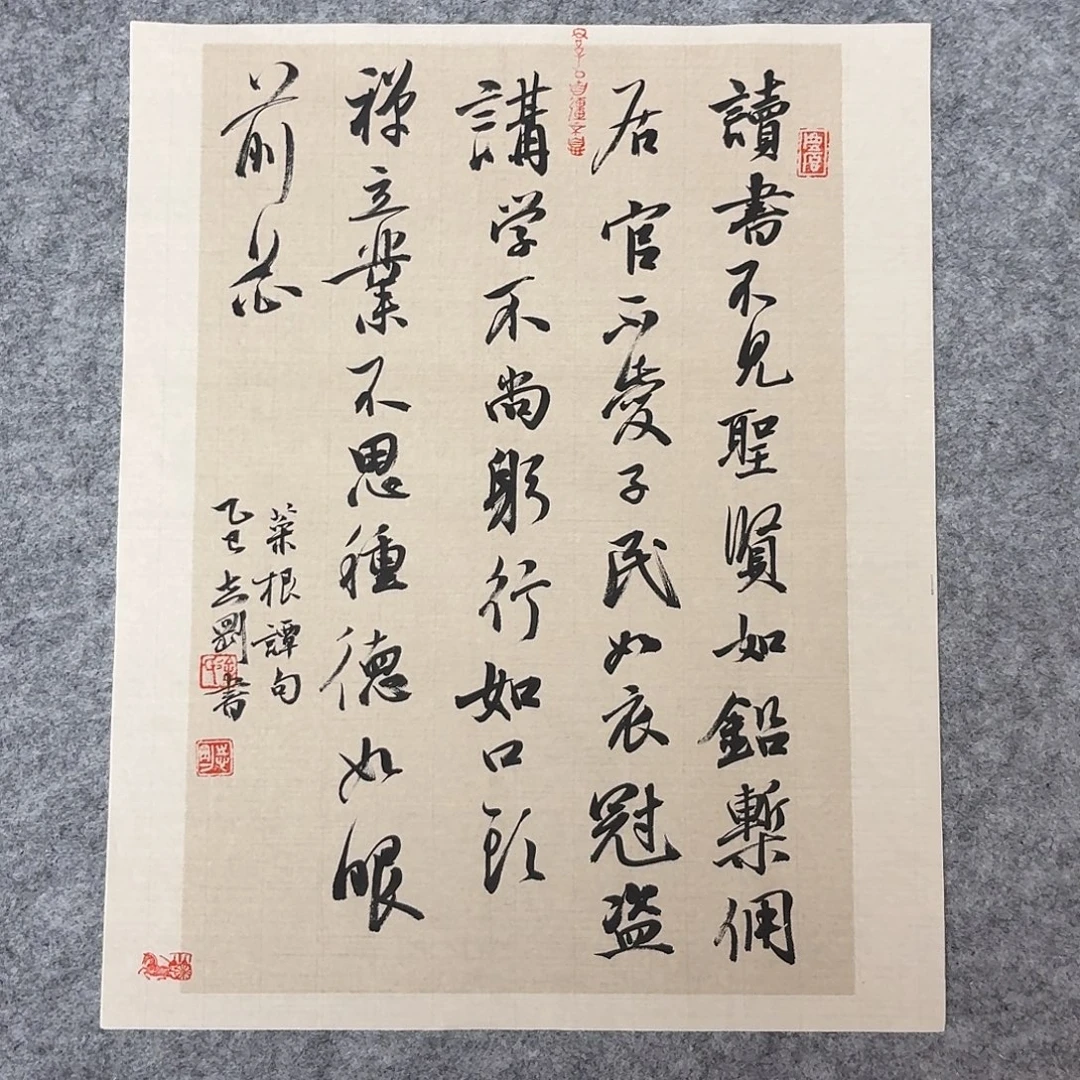 讀書不見聖賢如鉛槧傭
居官不愛子民如衣冠盗
講学不尚躬行如口頭
禅立業不思種德如眼
前花
菜根譚句
乙巳志剛書